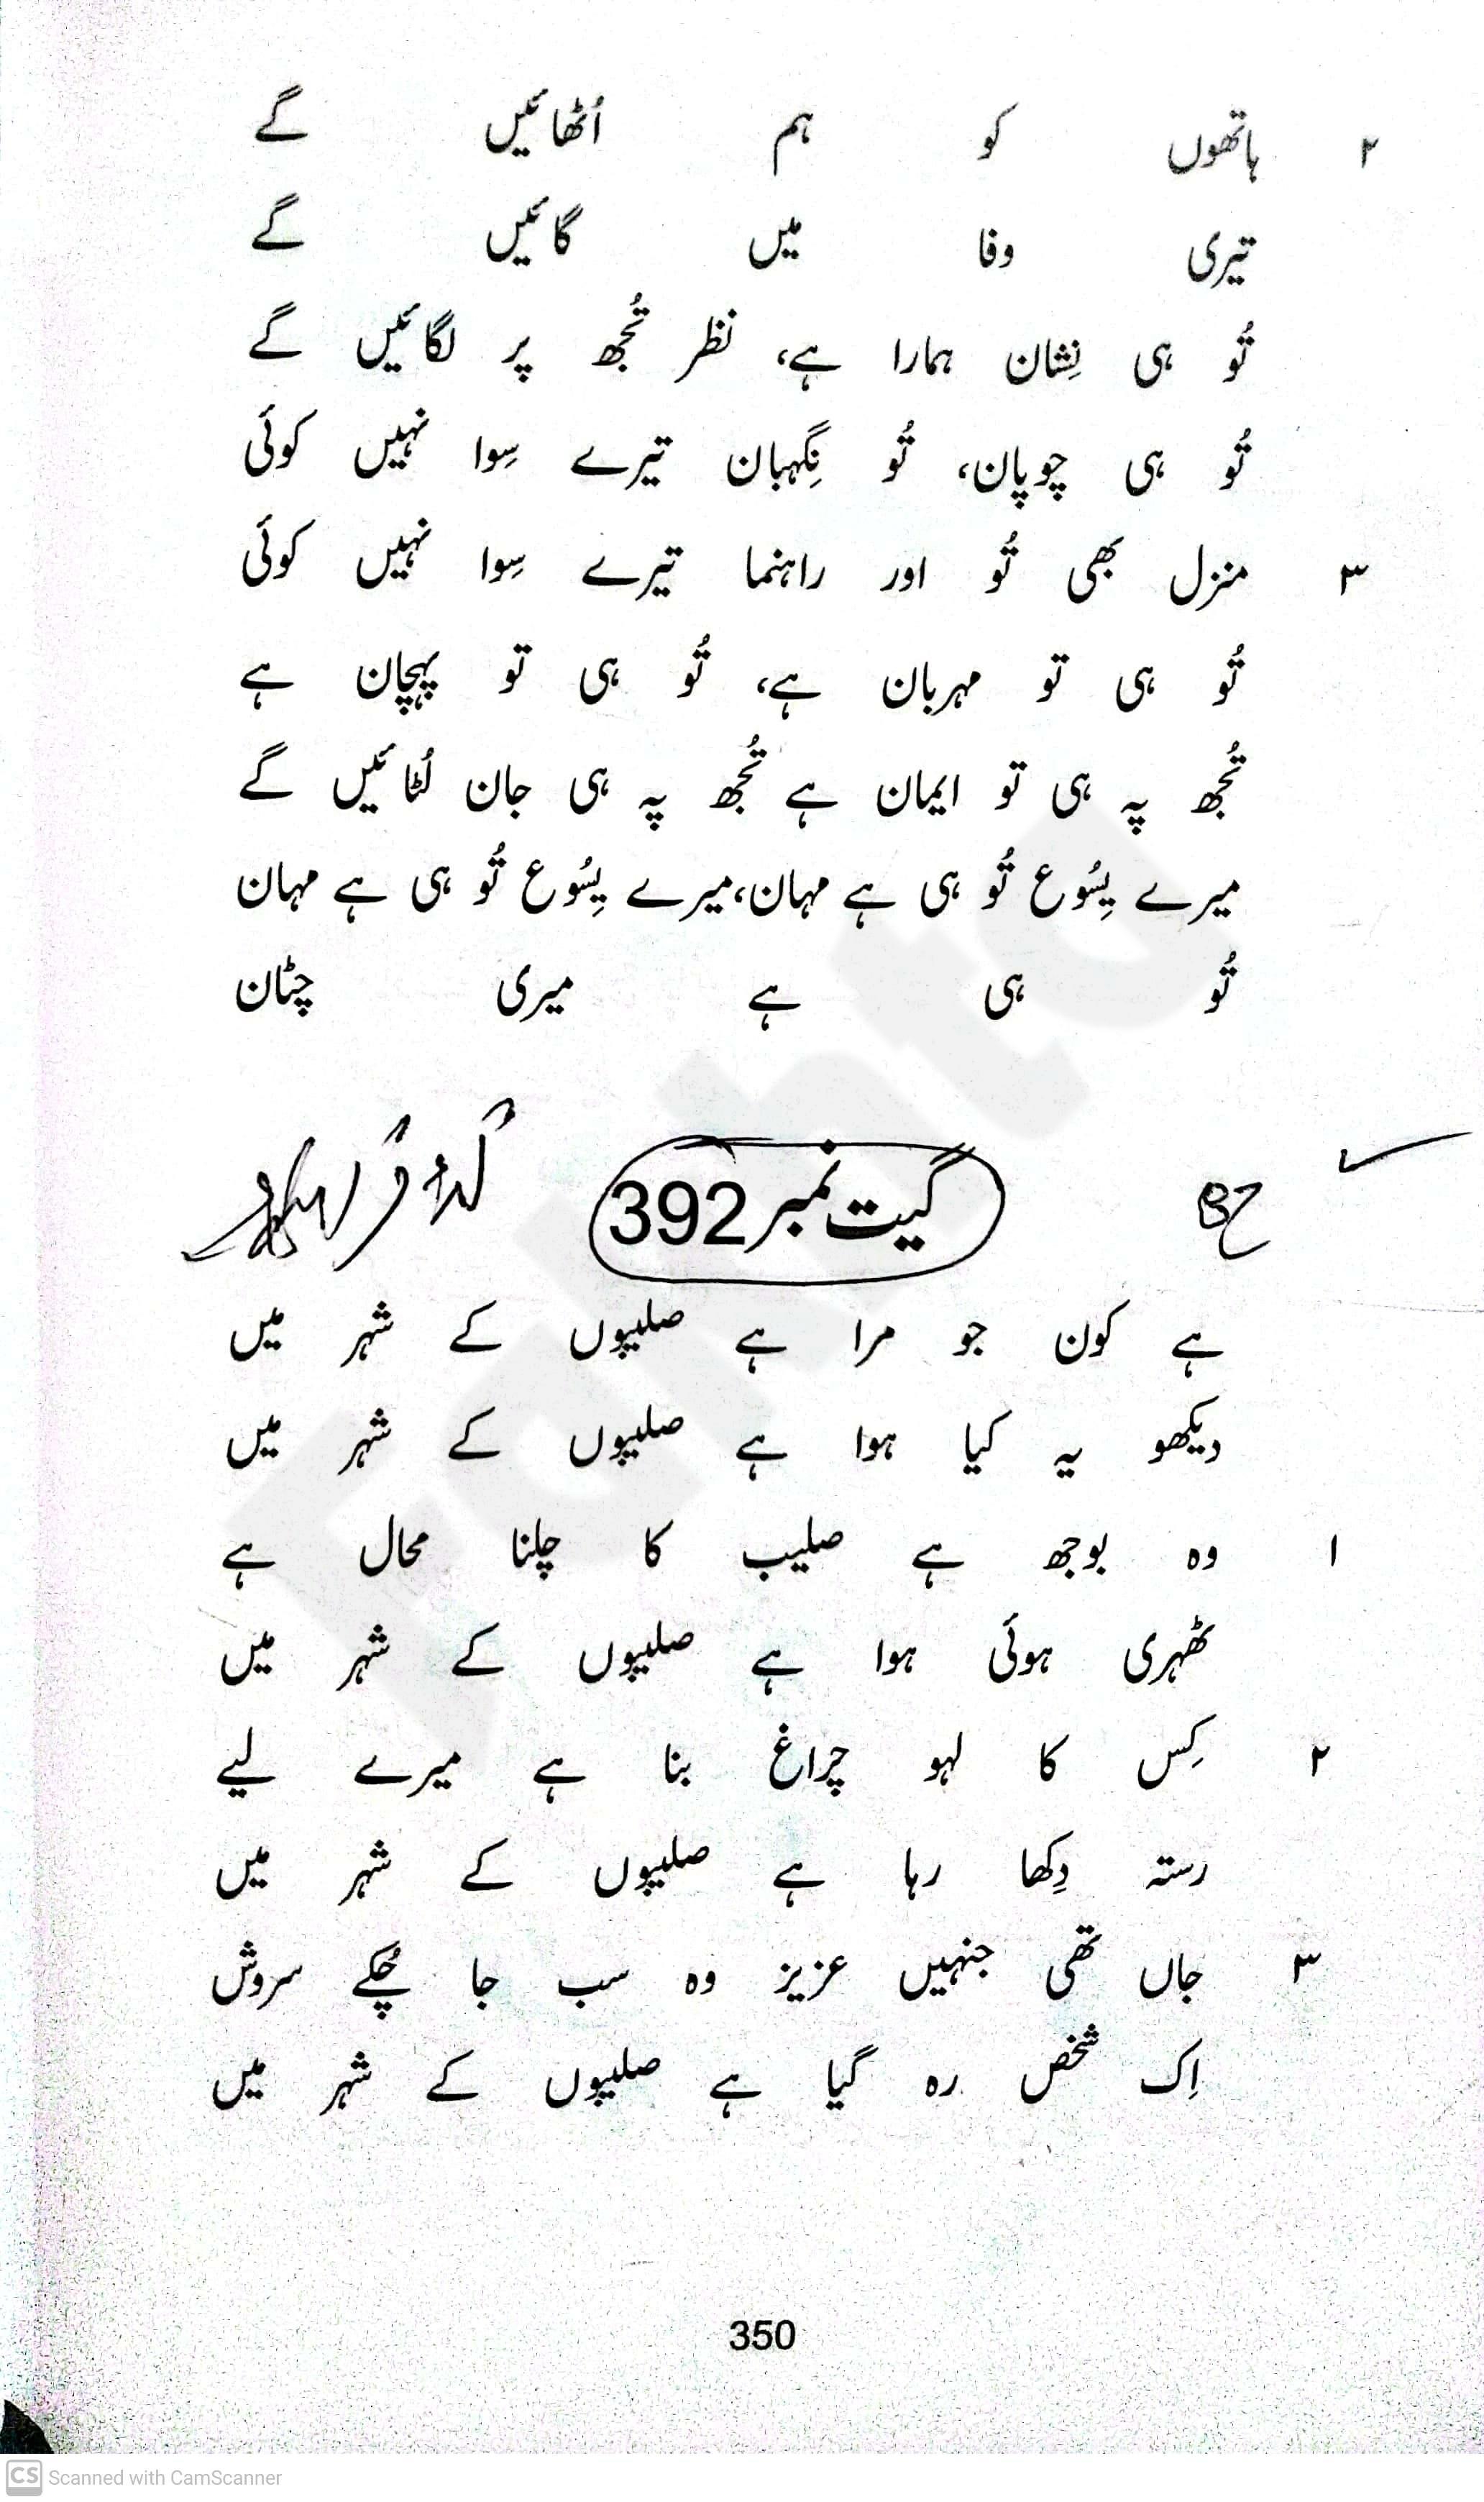 ۲ ہاتھوں کو ہم اُٹھائیں گے
تیری وفا میں گائیں گے
تُو ہی نِشان ہمارا ہے، نظر تُجھ پر لگائیں گے
تُو ہی چوپان، تُو نِگہبان تیرے سِوا نہیں کوئی
۳ منزل بھی تُو اور راہنما تیرے سِوا نہیں کوئی
تُو ہی تو مہربان ہے، تُو ہی تو پہچان ہے
تُجھ پہ ہی تو ایمان ہے تُجھ پہ ہی جان لُٹائیں گے
میرے یِسُوع تُو ہی ہے مہان،میرے یِسُوع تُو ہی ہے مہان
تُو ہی ہے میری چٹان
گیت نمبر 392
ہے کون جو مرا ہے صلیبوں کے شہر میں
دیکھو یہ کیا ہوا ہے صلیبوں کے شہر میں
۱ وہ بوجھ ہے صلیب کا چلنا محال ہے
ٹھہری ہوئی ہوا ہے صلیبوں کے شہر میں
۲ کِس کا لہو چراغ بنا ہے میرے لیے
رستہ دِکھا رہا ہے صلیبوں کے شہر میں
۳ جاں تھی جنہیں عزیز وہ سب جا چُکے سروش
اِک شخص رہ گیا ہے صلیبوں کے شہر میں
350
CS Scanned with CamScanner